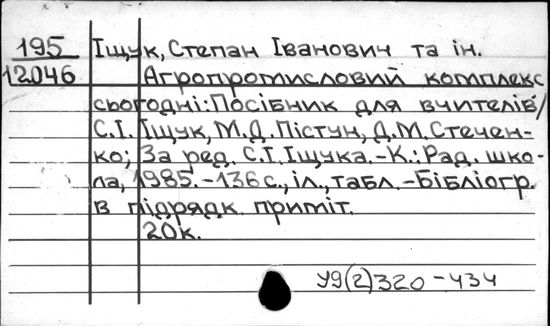 195 Іщук, Степан Іванович та ін.
12046 Агропромисловий комплекс
сьогодні: Посібник для вчителів/
С.І. Іщук, М.Д. Пістун, Д.М. Стечен-
ко; За ред. С.І. Іщука. - К.: Рад. шко-
ла, 1985. - 136 с., іл., табл. - Бібліогр.
в підрядк. приміт.
20к.
У9(2)320-434